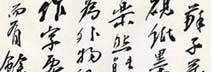 蘇子美
硯紙墨
樂然
為外物
作字
而有餘